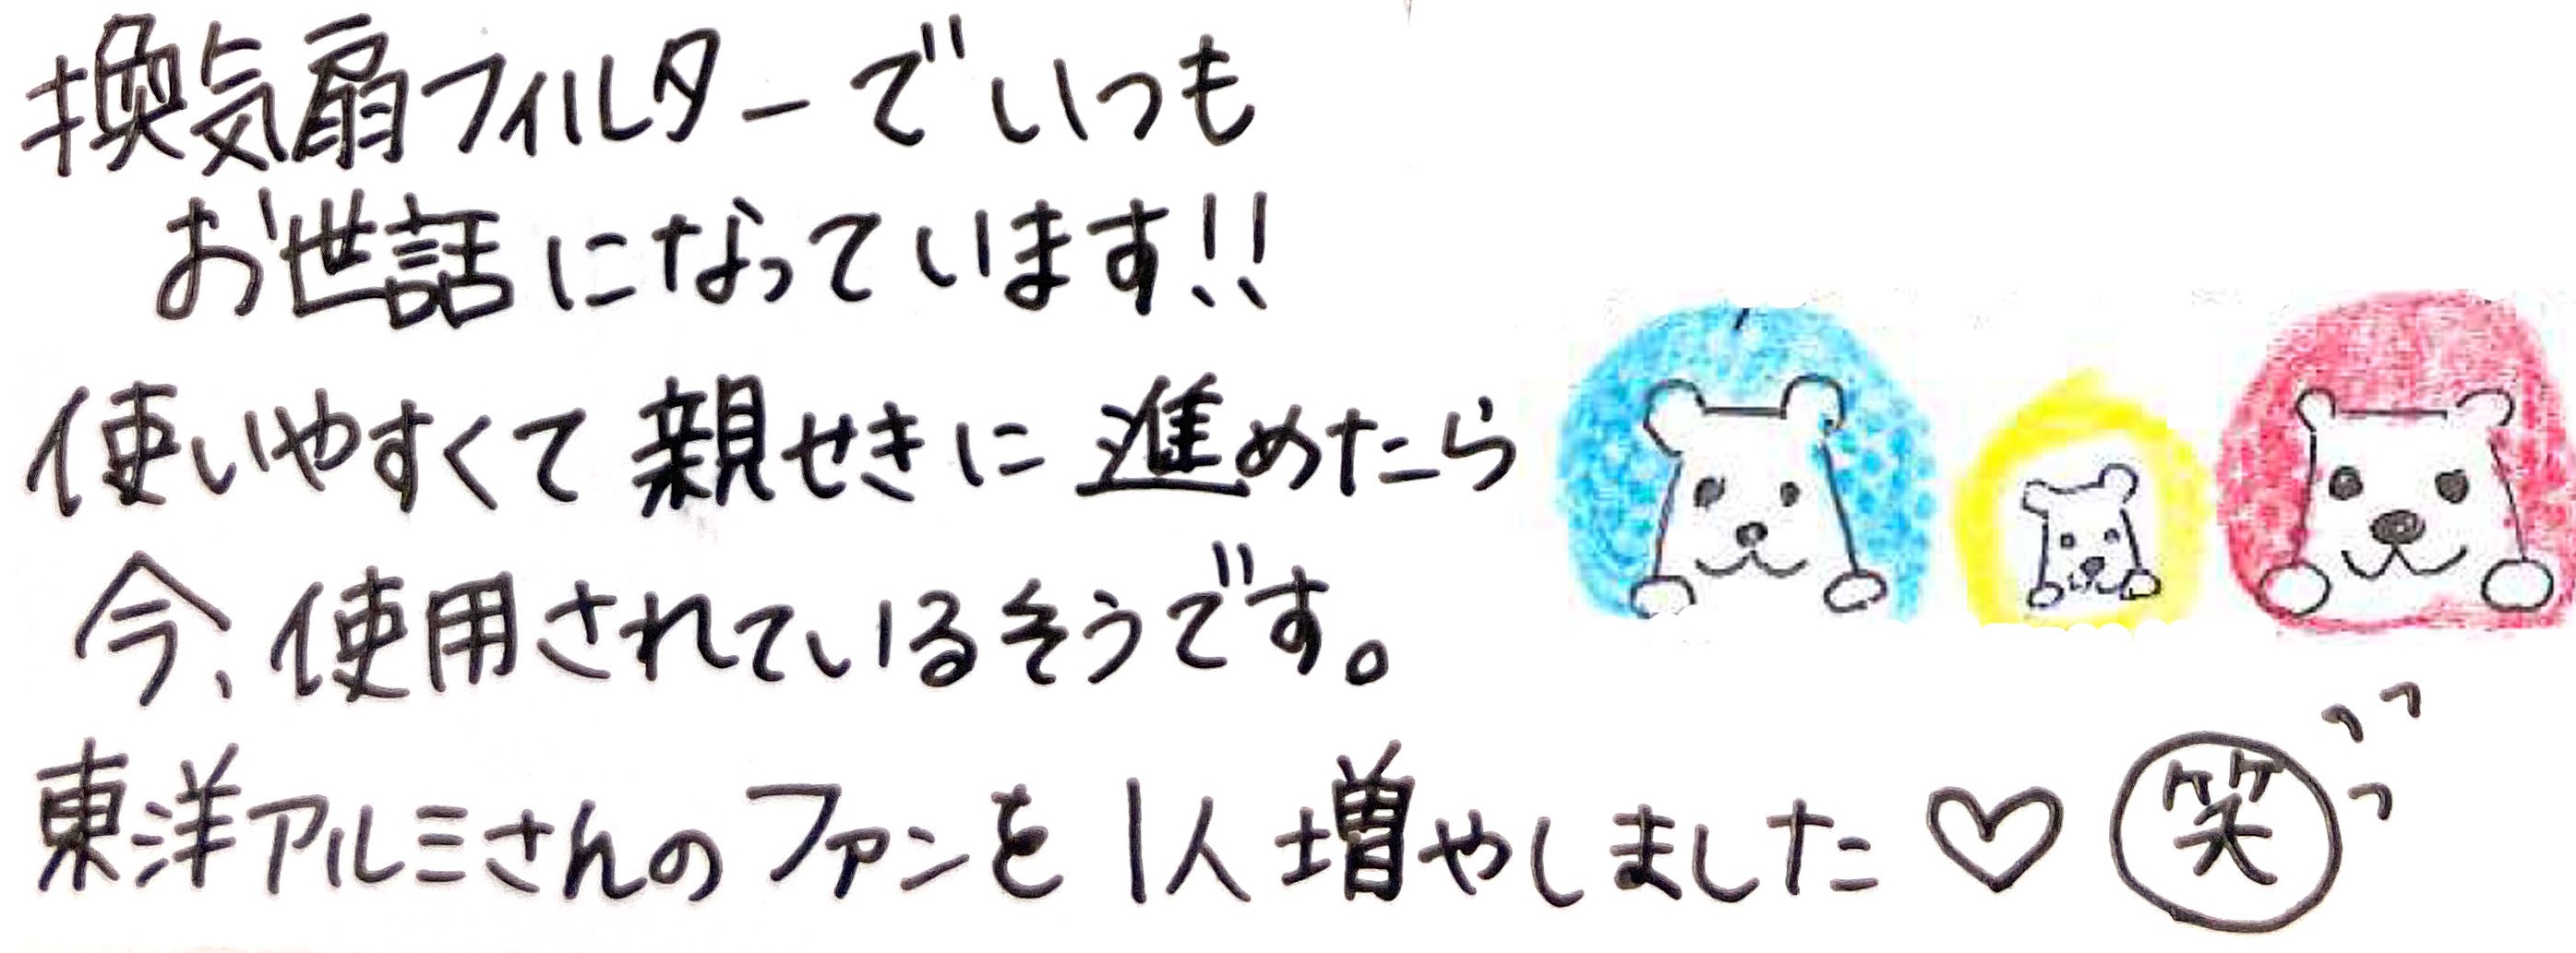 換気扇フィルターでいつも
お世話になっています!!
使いやすくて親せきに進めたら
今、使用されているそうです。
東洋アルミさんのファンを1人増やしました♡ 笑